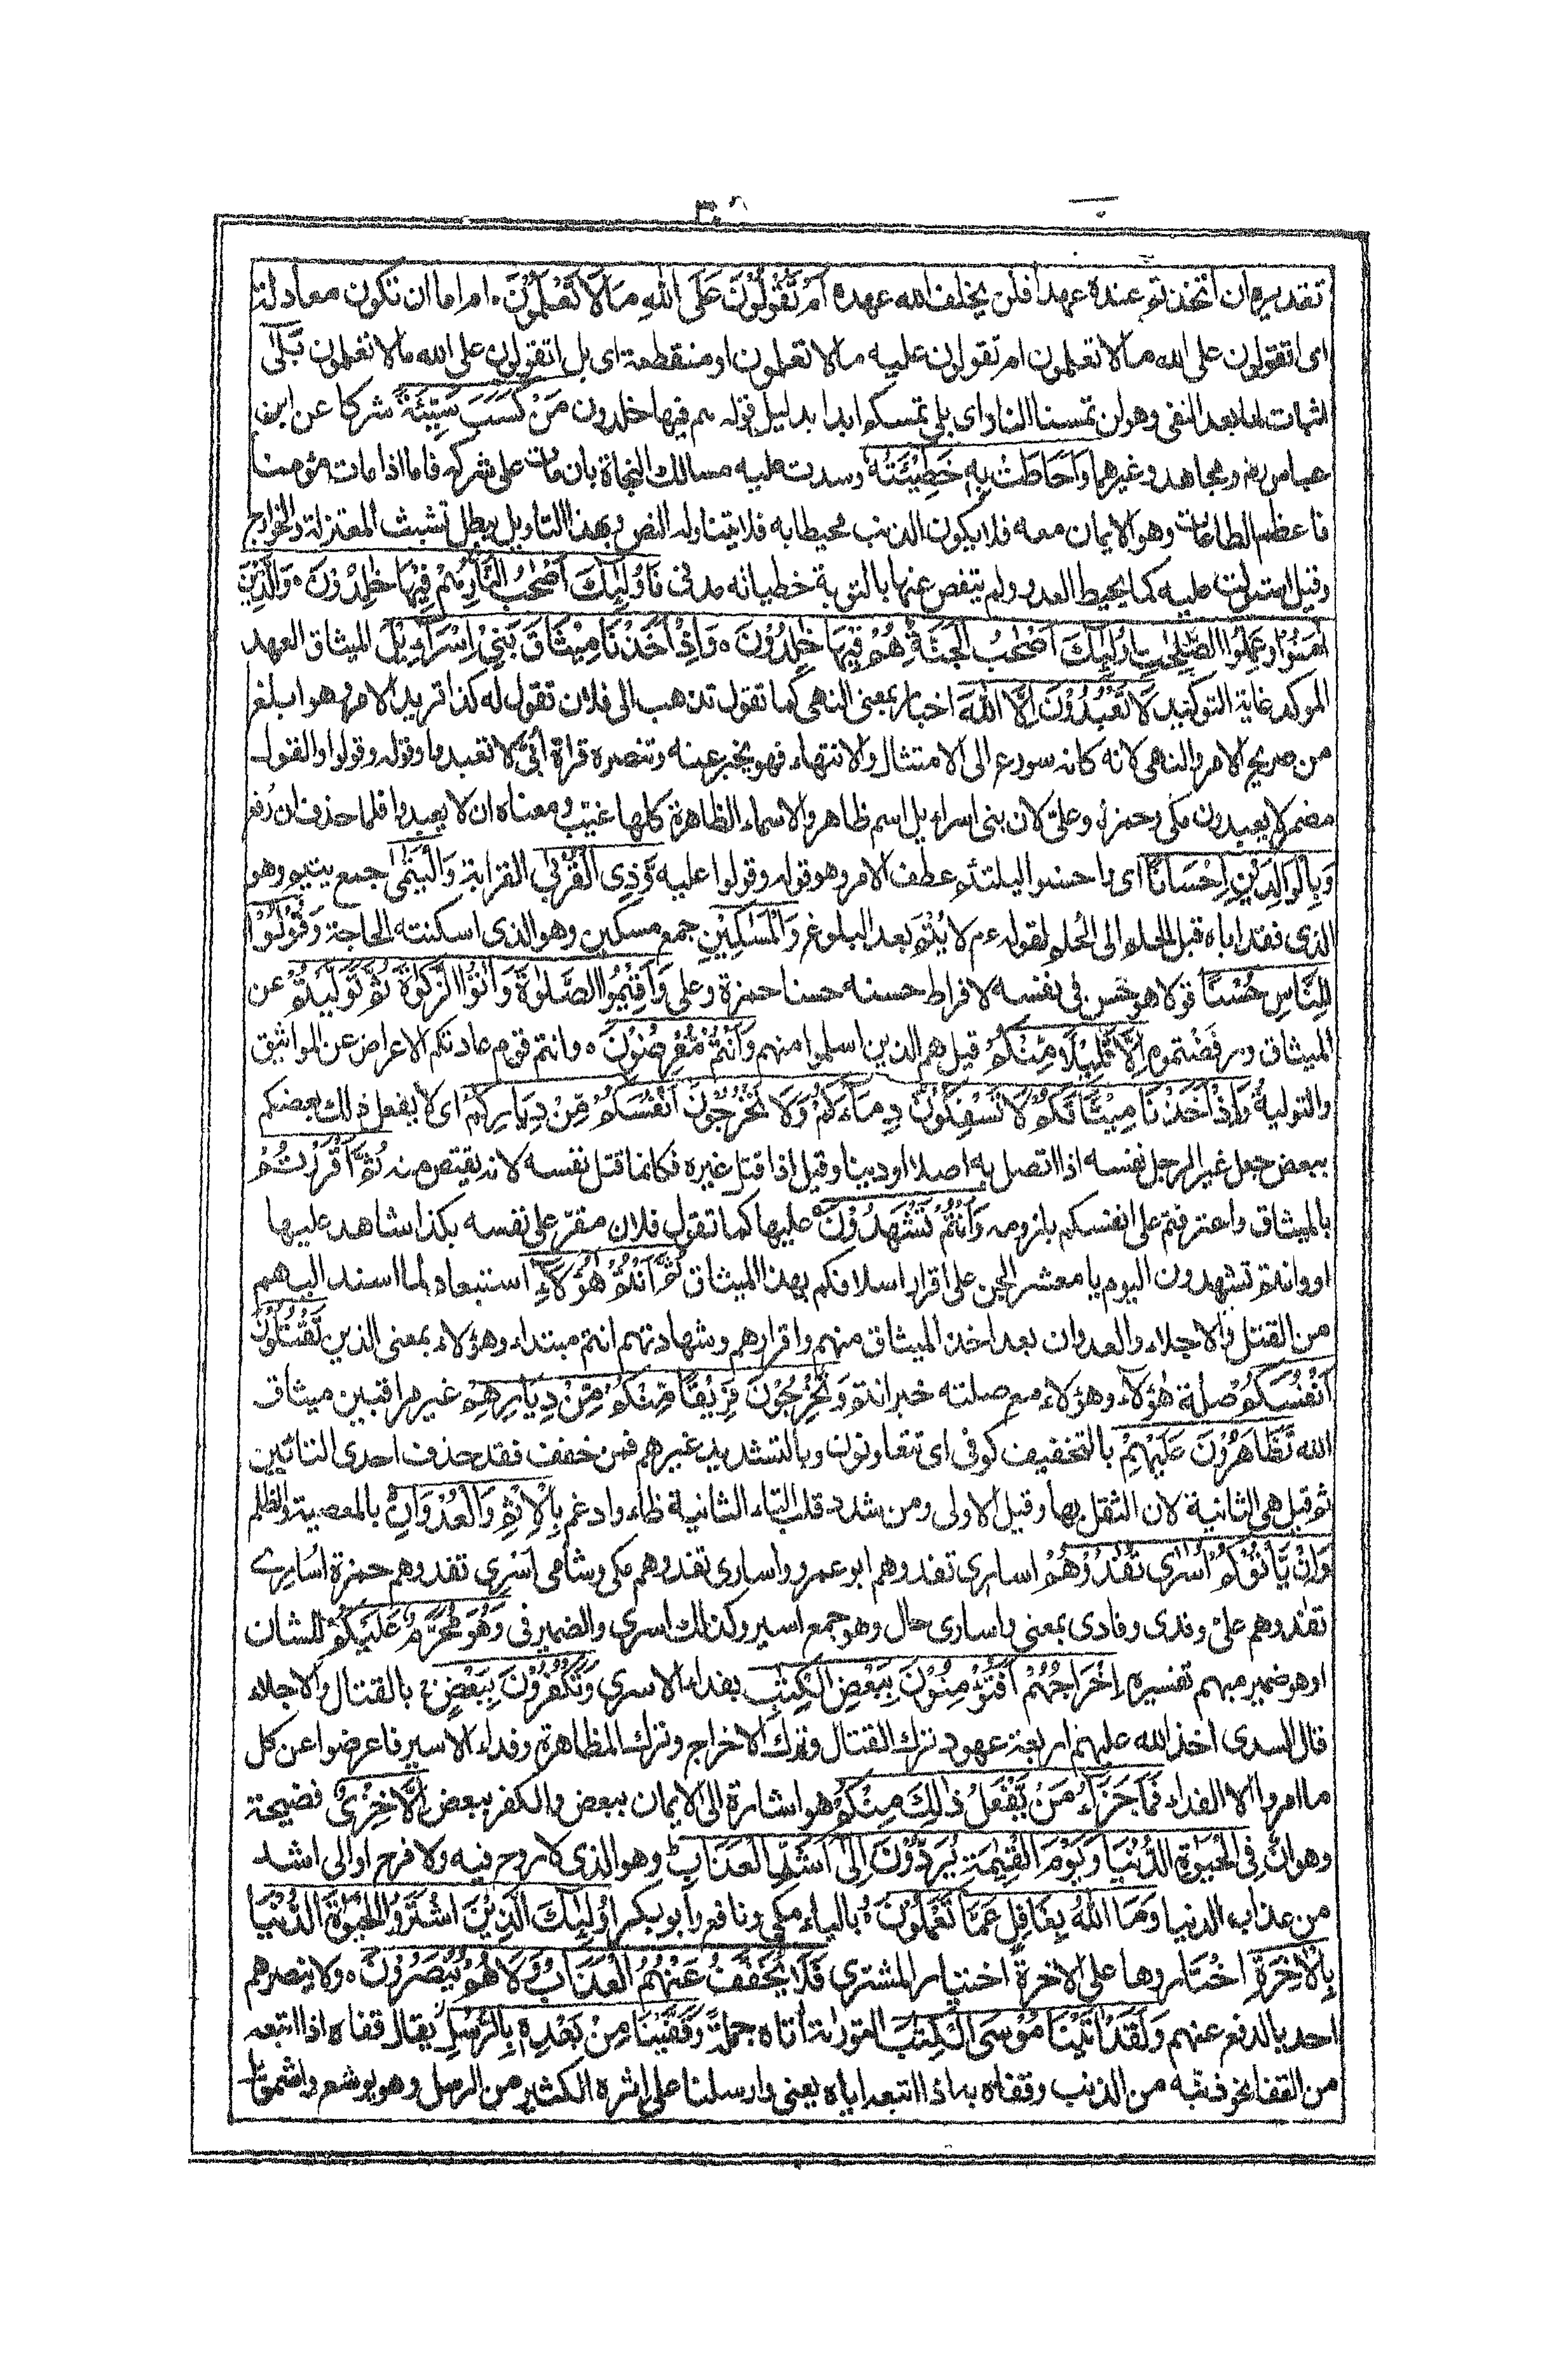 تقديره ان اتخذتم عنده عهدا فلن يخلف الله عهده اَمْ تَقُوْلُوْنَ عَلَى اللّٰهِ مَا لَا تَعْلَمُوْنَ ه ام اما ان تكون معادلة
اى اتقولون على الله ما لا تعلمون ام تقولون عليه ما لا تعلمون او منقطعة اى بل اتقولون على الله ما لا تعلمون بَلٰى
اثبات لما بعد النفى وهو لن تمسنا النار اى بلى تمسكم ابدا بدليل قوله هم فيها خلدون مَنْ كَسَبَ سَيِّئَةً شركا عن ابن
عباس رض ومجاهد وغيرهما وَاَحَاطَتْ بِهٖ خَطِيْئَتُهٗ وسدت عليه مسالك النجاة بان مات على شركه فاما اذا مات مؤمنا
فاعظم الطاعات وهو الايمان معه فلا يكون الذنب محيطا به فلا يتناوله النص وبهذا التاويل يبطل تشبث المعتزلة والخوارج
وقيل استولت عليه كما يحيط العدو ولم يتفص عنها بالتوبة خطيأته مدنى فَاُولٰٓئِكَ اَصْحٰبُ النَّارِ هُمْ فِيْهَا خٰلِدُوْنَ ه وَالَّذِيْنَ
اٰمَنُوْا وَعَمِلُوا الصّٰلِحٰتِ اُولٰٓئِكَ اَصْحٰبُ الْجَنَّةِ هُمْ فِيْهَا خٰلِدُوْنَ ه وَاِذْ اَخَذْنَا مِيْثَاقَ بَنِيْ اِسْرَآءِيْلَ الميثاق العهد
الموكد غاية التوكيد لَا تَعْبُدُوْنَ اِلَّا اللّٰهَ اخبار بمعنى النهى كما تقول تذهب الى فلان تقول له كذا تريد الامر وهو ابلغ
من صريح الامر والنهى لانه كانه سورع الى الامتثال والانتهاء فهو يخبر عنه وتنصره قراءة اُبَىّ لا تعبدوا وقوله وقولوا والقول
مضمر لا يعبدون مكى وحمزة وعلى لان بنى اسراءيل اسم ظاهر والاسماء الظاهرة كلها غيب ومعناه ان لا يعبدوا فلما حذف ان رفع
وَبِالْوَالِدَيْنِ اِحْسَانًا اى واحسنوا ليلتئم عطف الامر وهو قوله وقولوا عليه وَّذِى الْقُرْبٰى القرابة وَالْيَتٰمٰى جمع يتيم وهو
الذى فقد اباه قبل الحلم الى الحُلم لقوله عم لا يُتْمَ بعد البلوغ وَالْمَسٰكِيْنِ جمع مسكين وهو الذى اسكنته الحاجة وَقُوْلُوْا
لِلنَّاسِ حُسْنًا قولا هو حسن فى نفسه لافراط حسنه حسنا حمزة وعلى وَاَقِيْمُوا الصَّلٰوةَ وَاٰتُوا الزَّكٰوةَ ثُمَّ تَوَلَّيْتُمْ عن
الميثاق ورفضتموه اِلَّا قَلِيْلًا مِّنْكُمْ قيل هم الذين اسلموا منهم وَاَنْتُمْ مُّعْرِضُوْنَ ه وانتم قوم عادتكم الاعراض عن المواثيق
والتولية وَاِذْ اَخَذْنَا مِيْثَاقَكُمْ لَا تَسْفِكُوْنَ دِمَآءَكُمْ وَلَا تُخْرِجُوْنَ اَنْفُسَكُمْ مِّنْ دِيَارِكُمْ اى لا يفعل ذلك بعضكم
ببعض جعل غير الرجل نفسه اذا اتصل به اصلا او دينا وقيل اذا قتل غيره فكانما قتل نفسه لانه يقتص منه ثُمَّ اَقْرَرْتُمْ
بالميثاق واعترفتم على انفسكم بلزومه وَاَنْتُمْ تَشْهَدُوْنَ ه عليها كما تقول فلان مقرّ على نفسه بكذا شاهد عليها
او وانتم تشهدون اليوم يا معشر اليهود على اقرار اسلافكم بهذا الميثاق ثُمَّ اَنْتُمْ هٰٓؤُلَآءِ استبعاد لما اسند اليهم
من القتل والاجلاء والعدوان بعد اخذ الميثاق منهم واقرارهم وشهادتهم انتم مبتداء وهؤلاء بمعنى الذين تَقْتُلُوْنَ
اَنْفُسَكُمْ صلة هؤلاء وهؤلاء مع صلته خبر انتم وَتُخْرِجُوْنَ فَرِيْقًا مِّنْكُمْ مِّنْ دِيَارِهِمْ غير مراقبين ميثاق
الله تَظَاهَرُوْنَ عَلَيْهِمْ بالتخفيف كوفى اى تتعاونون وبالتشديد غيرهم فمن خفف فقد حذف احدى التائين
ثم قيل هى الثانية لان الثقل بها وقيل الاولى ومن شدد قلب التاء الثانية ظاء وادغم بِالْاِثْمِ وَالْعُدْوَانِ بالمعصية والظلم
وَاِنْ يَّاْتُوْكُمْ اُسٰرٰى تُفٰدُوْهُمْ اسارى تفدوهم ابو عمرو واسارى تفدوهم مكى وشامى اَسْرى تفدوهم حمزة اسارى
تفٰدوهم على وفدى وفادى بمعنى واسارى حال وهو جمع اسير وكذلك اسرى والضمير فى وَهُوَ مُحَرَّمٌ عَلَيْكُمْ للشان
او هو ضمير مبهم تفسيره اِخْرَاجُهُمْ اَفَتُؤْمِنُوْنَ بِبَعْضِ الْكِتٰبِ بفداء الاسرى وَتَكْفُرُوْنَ بِبَعْضٍ بالقتال والاجلاء
قال السدى اخذ الله عليهم اربعة عهود ترك القتال وترك الاخراج وترك المظاهرة وفداء الاسير فاعرضوا عن كل
ما امروا الا الفداء فَمَا جَزَآءُ مَنْ يَّفْعَلُ ذٰلِكَ مِنْكُمْ هو اشارة الى الايمان ببعض والكفر ببعض اِلَّا خِزْىٌ فضيحة
وهوان فِى الْحَيٰوةِ الدُّنْيَا وَيَوْمَ الْقِيٰمَةِ يُرَدُّوْنَ اِلٰى اَشَدِّ الْعَذَابِ وهو الذى لا روح فيه ولا فرح او الى اشد
من عذاب الدنيا وَمَا اللّٰهُ بِغَافِلٍ عَمَّا تَعْمَلُوْنَ ه بالياء مكى ونافع وابو بكر اُولٰٓئِكَ الَّذِيْنَ اشْتَرَوُا الْحَيٰوةَ الدُّنْيَا
بِالْاٰخِرَةِ اختاروها على الاخرة اختيار المشترى فَلَا يُخَفَّفُ عَنْهُمُ الْعَذَابُ وَلَا هُمْ يُنْصَرُوْنَ ه ولا ينصرهم
احد بالدفع عنهم وَلَقَدْ اٰتَيْنَا مُوْسَى الْكِتٰبَ التورٰىة اٰتاه جملة وَقَفَّيْنَا مِنْ بَعْدِهٖ بِالرُّسُلِ يقال قفاه اذا اتبعه
من القفا نحو ذنبه من الذنب وقفاه به اذا اتبعه اياه يعنى وارسلنا على اثره الكثير من الرسل وهو يوشع واشمويل